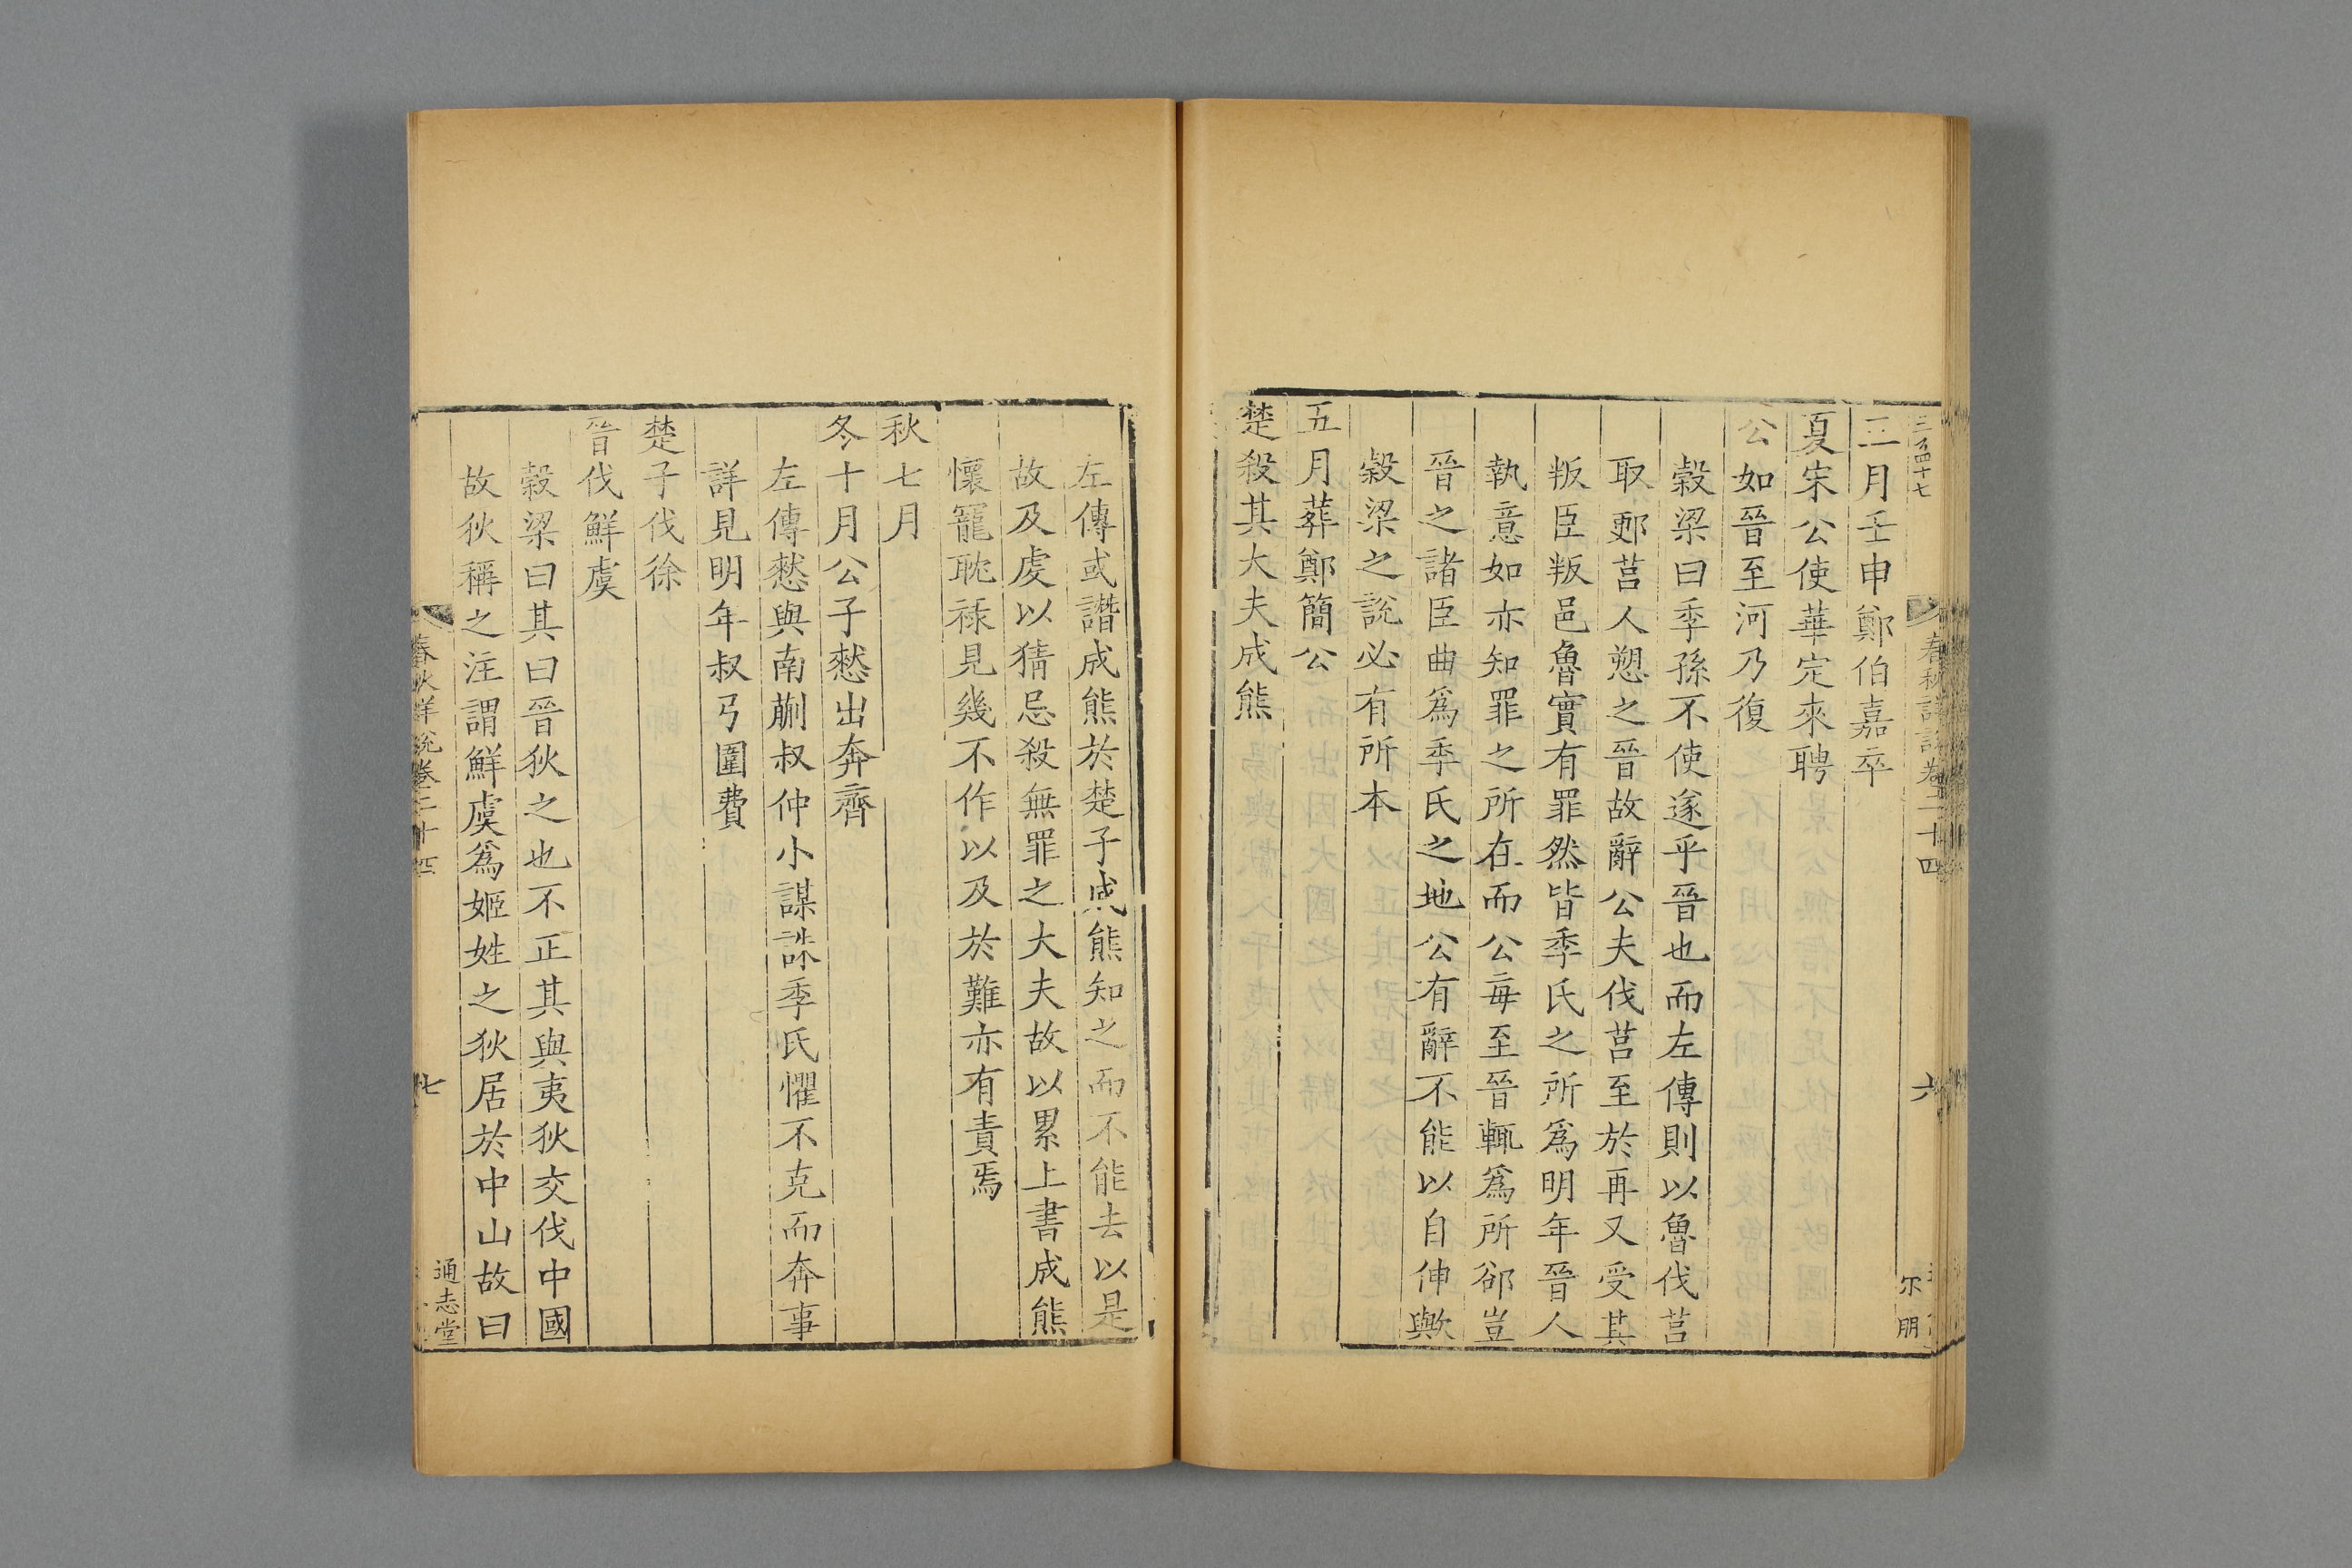 春秋詳說卷二十四
六
尔朋
三月壬申鄭伯嘉卒
夏宋公使華定來聘
公如晉至河乃復
穀梁曰季孫不使遂乎晉也而左傳則以魯伐莒
取郠莒人愬之晉故辭公夫伐莒至於再又受其
叛臣叛邑魯實有罪然皆季氏之所爲明年晉人
執意如亦知罪之所在而公每至晉輒爲所郤豈
晉之諸臣曲爲季氏之地公有辭不能以自伸歟
穀梁之說必有所本
五月葬鄭簡公
楚殺其大夫成熊
左傳或譖成熊於楚子成熊知之而不能去以是
故及虔以猜忌殺無罪之大夫故以累上書成熊
懷寵耽祿見幾不作以及於難亦有責焉
秋七月
冬十月公子憖出奔齊
左傳憖與南蒯叔仲小謀誅季氏懼不克而奔事
詳見明年叔弓圍費
楚子伐徐
晉伐鮮虞
穀梁曰其曰晉狄之也不正其與夷狄交伐中國
故狄稱之注謂鮮虞爲姬姓之狄居於中山故曰
春秋詳說卷二十四
七
通志堂